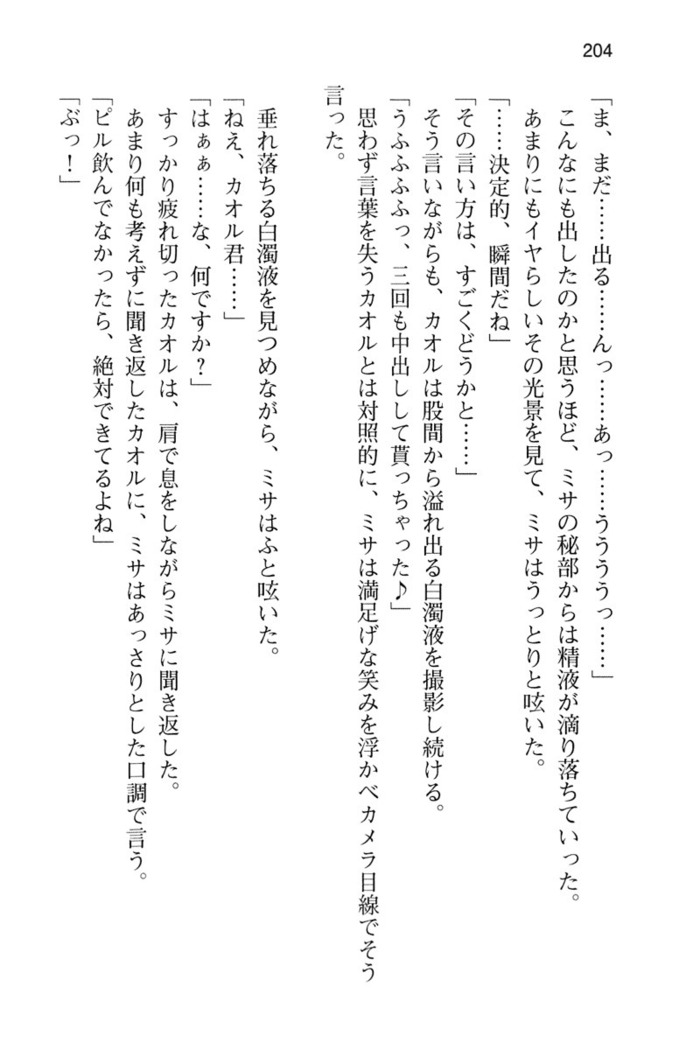 204
「ま、まだ……出る……んっ……あっ……うううっ……」
こんなにも出したのかと思うほど、ミサの秘部からは精液が滴り落ちていった。
あまりにもイヤらしいその光景を見て、ミサはうっとりと呟いた。
「……決定的、瞬間だね」
「その言い方は、すごくどうかと……」
そう言いながらも、カオルは股間から溢れ出る白濁液を撮影し続ける。
「うふふふふっ、三回も中出しして貰っちゃった♪」
思わず言葉を失うカオルとは対照的に、ミサは満足げな笑みを浮かべカメラ目線でそう
言った。
垂れ落ちる白濁液を見つめながら、ミサはふと呟いた。
「ねえ、カオル君……」
「はぁぁ……な、何ですか？」
すっかり疲れ切ったカオルは、肩で息をしながらミサに聞き返した。
あまり何も考えずに聞き返したカオルに、ミサはあっさりとした口調で言う。
「ピル飲んでなかったら、絶対できてるよね」
「ぶっ！」